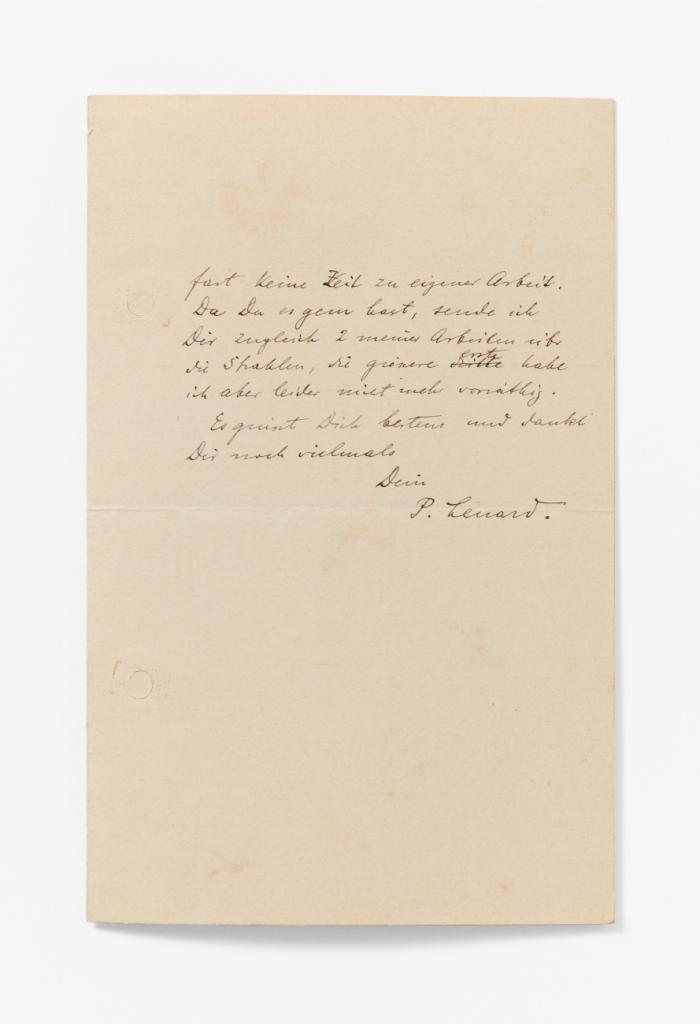 fast keine Zeit zu eigener Arbeit.
Da Du es gern hast, sende ich
Dir zugleich 2 meiner Arbeiten über
die Strahlen, die grössere erste habe
ich aber leider nicht mehr vorräthig.
Es grüsst Dich bestens und dankt
Dir noch vielmals
Dein
P. Lenard.